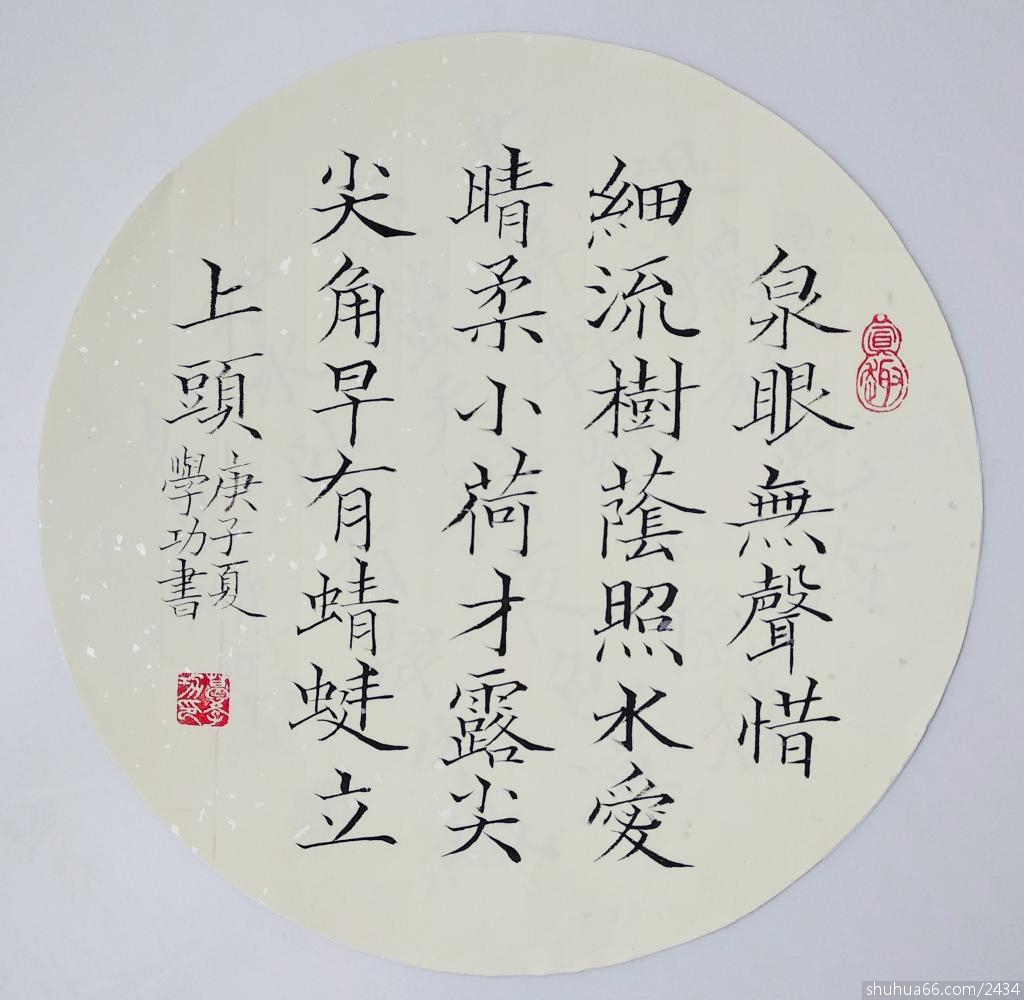 泉眼無聲惜
細流樹蔭照水愛
晴柔小荷才露尖
尖角早有蜻蜓立
上頭
庚子夏
學功書
shuhua66.com/2434